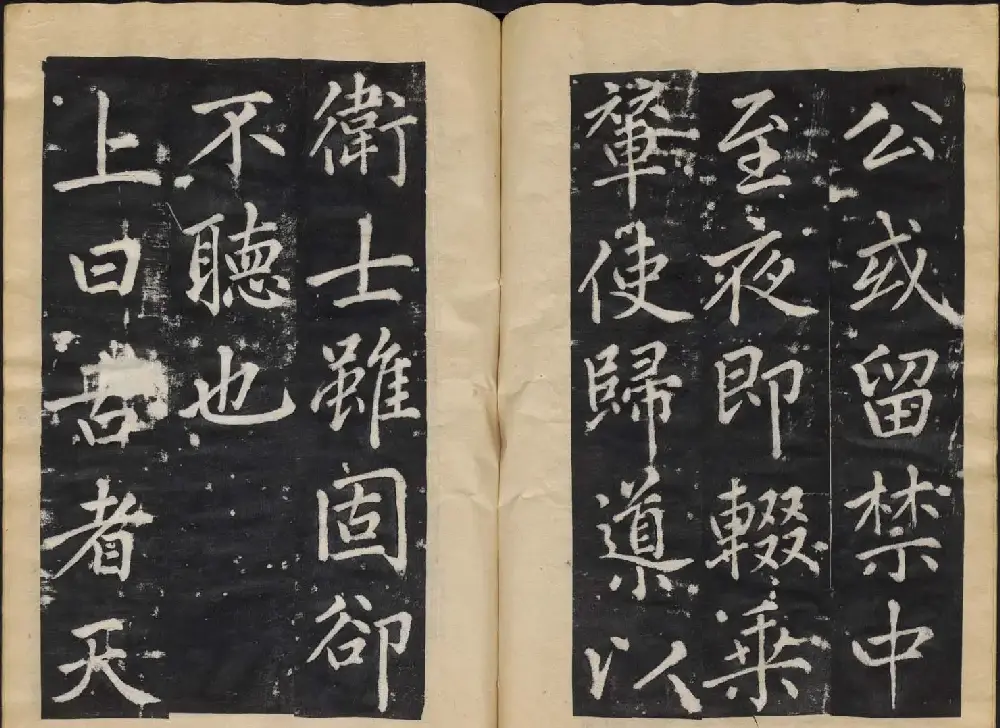 公或留禁中
至夜即輟乗
輦使歸導以
衛士雖固卻
不聽也
上日吾者天